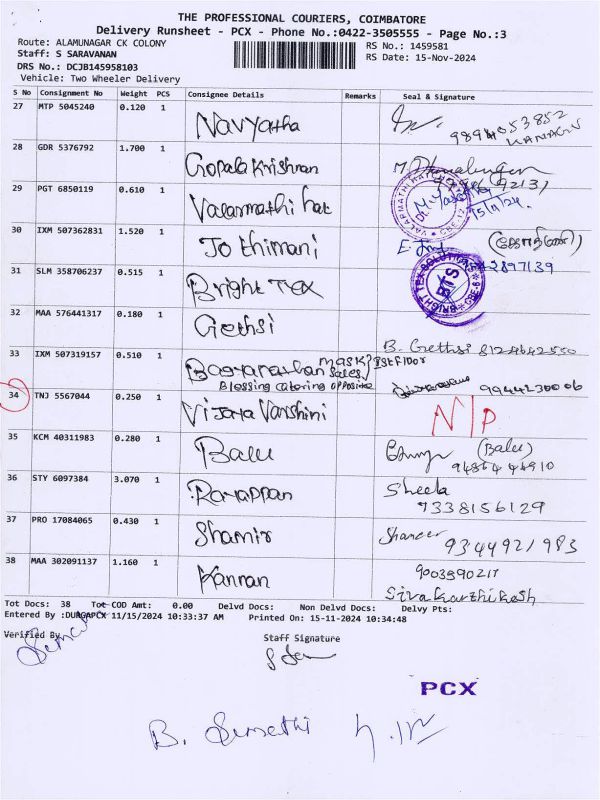 THE PROFESSIONAL COURIERS, COIMBATORE
Delivery Runsheet - PCX - Phone No.:0422-3505555 - Page No.:3
Route: ALAMUNAGAR CK COLONY
Staff: S SARAVANAN
DRS No.: DCJB145958103
Vehicle: Two Wheeler Delivery
RS No.: 1459581
RS Date: 15-Nov-2024
S No Consignment No Weight PCS Consignee Details Remarks Seal & Signature
27 MTP 5045240 0.120 1 Navyatha 9894053852
28 GDR 5376792 1.700 1 Gopala Krishnan
29 PGT 6850119 0.610 1 Valarmathi hat 15/11/24
30 IXM 507362831 1.520 1 Jothimani
31 SLM 358706237 0.515 1 Bright Tex BRIGHT TEX SOLUTIONS CBE-6 BTS
32 MAA 576441317 0.180 1 Gethsi B. Gethsi 8124642550
33 IXM 507319157 0.510 1 Mask sales / Ist Floor
Blessing Catering opposite 9944230006
34 TNJ 5567044 0.250 1 Vijaya Varshini N/P
35 KCM 40311983 0.280 1 Balu (Balu)
36 STY 6097384 3.070 1 Ravappan Sheela
7338156129
37 PRO 17084065 0.430 1 Shamir 9344921983
38 MAA 302091137 1.160 1 Kannan 9003890217
Sivakarthikesh
Tot Docs: 38 Tot COD Amt: 0.00 Delvd Docs: Non Delvd Docs: Delvy Pts:
Entered By :DURGAPCX 11/15/2024 10:33:37 AM Printed On: 15-11-2024 10:34:48
Verified By
Staff Signature
PCX
B. Sumathi